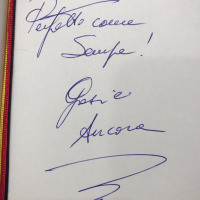 Perfetto come
Sempre!
Grazie
Ancora